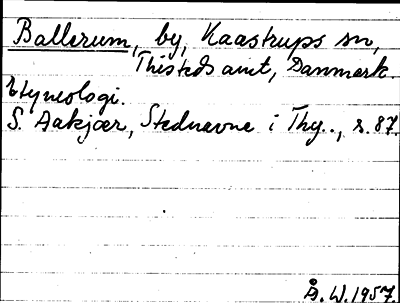 Ballerum, by, Kaastrups sn,
Thisteds amt, Danmark.
Etymologi.
S. Aakjær, Stednavne i Thy.., s. 87.
Å. W. 1957.